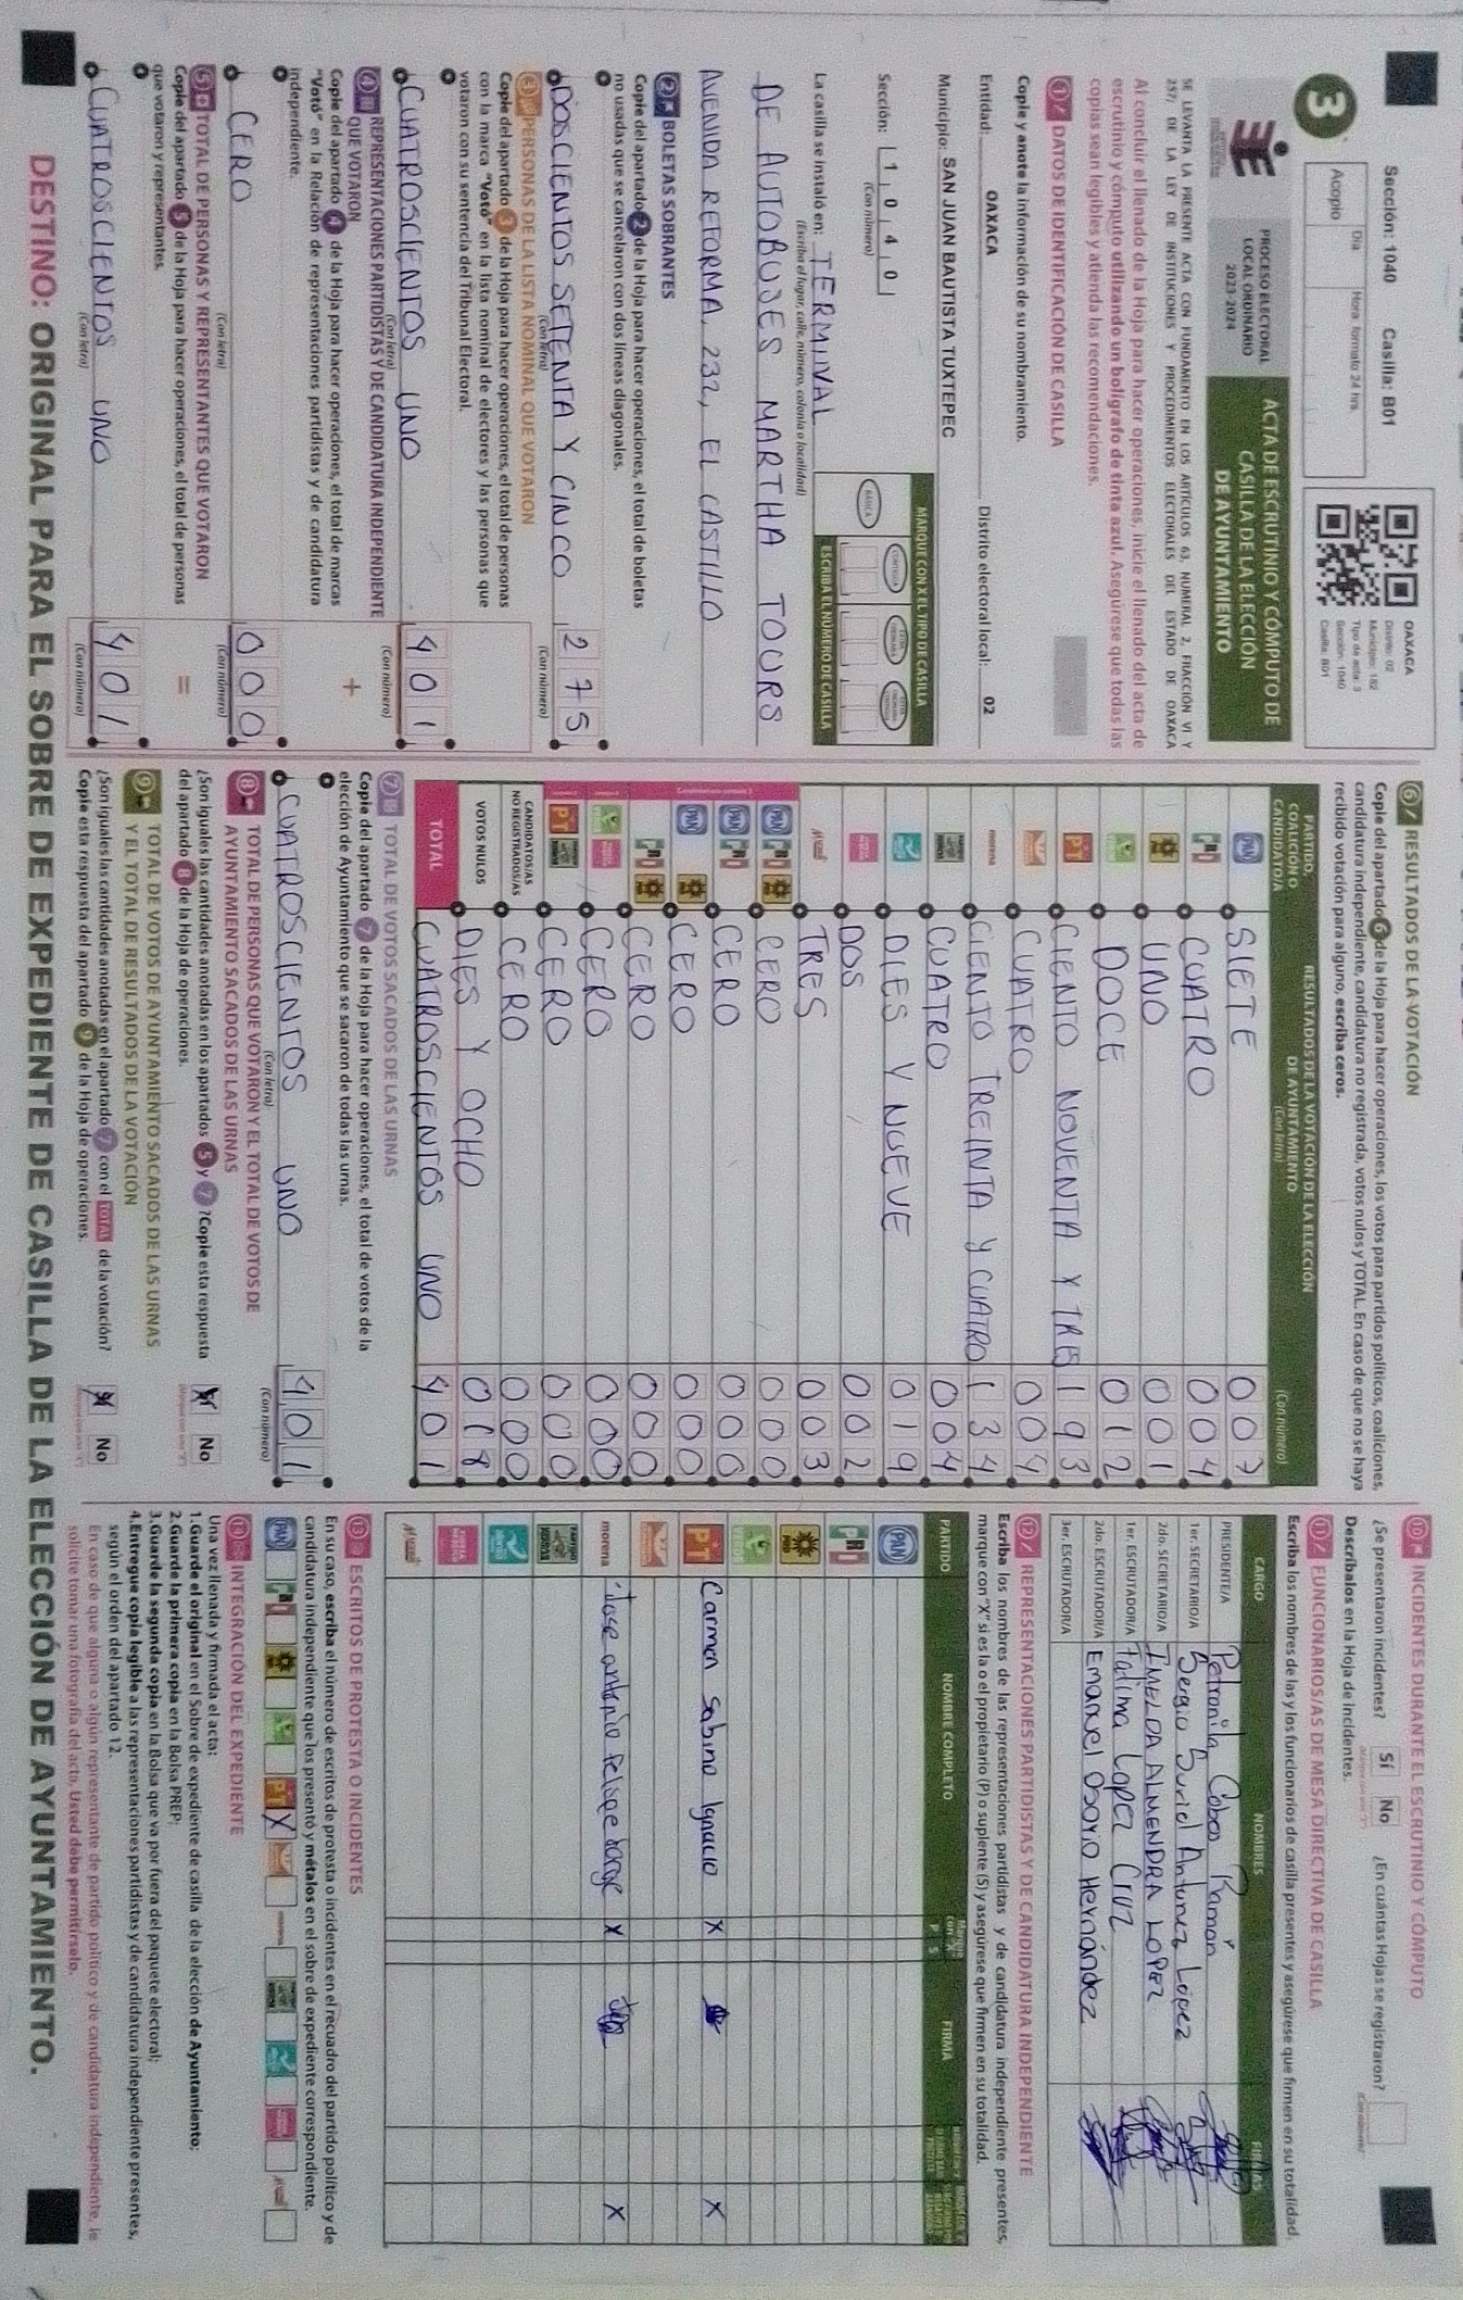 Sección: 1040 Casilla: B01
Día
Hora formato 24 hrs.
Acopio
3
OAXACA
Distrito: 02
Municipio: 182
Tipo de acta: 3
Sección: 1040
Casilla: B01
PROCESO ELECTORAL
LOCAL ORDINARIO
2023-2024
ACTA DE ESCRUTINIO Y CÓMPUTO DE
CASILLA DE LA ELECCIÓN
DE AYUNTAMIENTO
SE LEVANTA LA PRESENTE ACTA CON FUNDAMENTO EN LOS ARTÍCULOS 63, NUMERAL 2, FRACCIÓN VI Y
257; DE LA LEY DE INSTITUCIONES Y PROCEDIMIENTOS ELECTORALES DEL ESTADO DE OAXACA
Al concluir el llenado de la Hoja para hacer operaciones, inicie el llenado del acta de
escrutinio y cómputo utilizando un bolígrafo de tinta azul. Asegúrese que todas las
copias sean legibles y atienda las recomendaciones.
1 DATOS DE IDENTIFICACIÓN DE CASILLA
Copie y anote la información de su nombramiento.
Entidad: OAXACA Distrito electoral local: 02
Municipio: SAN JUAN BAUTISTA TUXTEPEC
Sección: 1 0 4 0
(Con número)
MARQUE CON X EL TIPO DE CASILLA
BÁSICA CONTIGUA
ESCRIBA EL NÚMERO DE CASILLA
La casilla se instaló en: TERMINAL
(Escriba el lugar, calle, número, colonia o localidad)
DE AUTOBUSES MARTHA TOOURS
AVENIDA REFORMA, 232, EL CASTILLO
2 BOLETAS SOBRANTES
Copie del apartado 2 de la Hoja para hacer operaciones, el total de boletas
no usadas que se cancelaron con dos líneas diagonales.
DOSCIENTOS SETENTA Y CINCO 2 7 5
(Con letra) (Con número)
3 PERSONAS DE LA LISTA NOMINAL QUE VOTARON
Copie del apartado 3 de la Hoja para hacer operaciones, el total de personas
con la marca "Votó" en la lista nominal de electores y las personas que
votaron con su sentencia del Tribunal Electoral.
CUATROSCIENTOS UNO 4 0 1
(Con letra) (Con número)
4 REPRESENTACIONES PARTIDISTAS Y DE CANDIDATURA INDEPENDIENTE
QUE VOTARON +
Copie del apartado 4 de la Hoja para hacer operaciones, el total de marcas
"Votó" en la Relación de representaciones partidistas y de candidatura
independiente.
CERO 0 0 0
(Con letra) (Con número)
5 TOTAL DE PERSONAS Y REPRESENTANTES QUE VOTARON
Copie del apartado 5 de la Hoja para hacer operaciones, el total de personas =
que votaron y representantes.
CUATROSCIENTOS UNO 4 0 1
(Con letra) (Con número)
6 RESULTADOS DE LA VOTACIÓN
Copie del apartado 6 de la Hoja para hacer operaciones, los votos para partidos políticos, coaliciones,
candidatura independiente, candidatura no registrada, votos nulos y TOTAL. En caso de que no se haya
recibido votación para alguno, escriba ceros.
PARTIDO, COALICIÓN O CANDIDATO/A
RESULTADOS DE LA VOTACIÓN DE LA ELECCIÓN
DE AYUNTAMIENTO
(Con letra) (Con número)
PAN SIETE 007
PRI CUATRO 004
PRD UNO 001
VERDE DOCE 012
PT CIENTO NOVENTA Y TRES 193
CUATRO 004
morena CIENTO TREINTA Y CUATRO 134
CUATRO 004
DIES Y NUEVE 019
DOS 002
TRES 003
PAN PRI PRD CERO 000
PAN PRI CERO 000
PAN PRD CERO 000
PRI PRD CERO 000
CERO 000
PT CERO 000
CANDIDATOS/AS
NO REGISTRADOS/AS CERO 000
VOTOS NULOS DIES Y OCHO 018
TOTAL CUATROSCIENTOS UNO 401
7 TOTAL DE VOTOS SACADOS DE LAS URNAS
Copie del apartado 7 de la Hoja para hacer operaciones, el total de votos de la
elección de Ayuntamiento que se sacaron de todas las urnas.
CUATROSCIENTOS UNO 4 0 1
(Con letra) (Con número)
8 TOTAL DE PERSONAS QUE VOTARON Y EL TOTAL DE VOTOS DE
AYUNTAMIENTO SACADOS DE LAS URNAS
¿Son iguales las cantidades anotadas en los apartados 5 y 7? Copie esta respuesta
del apartado 8 de la Hoja de operaciones.
X No
9 TOTAL DE VOTOS DE AYUNTAMIENTO SACADOS DE LAS URNAS
Y EL TOTAL DE RESULTADOS DE LA VOTACIÓN
¿Son iguales las cantidades anotadas en el apartado 7 con el TOTAL de la votación?
Copie esta respuesta del apartado 9 de la Hoja de operaciones.
X No
10 INCIDENTES DURANTE EL ESCRUTINIO Y CÓMPUTO
¿Se presentaron incidentes? Sí No ¿En cuántas Hojas se registraron?
(Con número)
Descríbalos en la Hoja de incidentes.
11 FUNCIONARIOS/AS DE MESA DIRECTIVA DE CASILLA
Escriba los nombres de las y los funcionarios de casilla presentes y asegúrese que firmen en su totalidad.
CARGO NOMBRES FIRMAS
PRESIDENTE/A Petronila Cobos Ramón
1er. SECRETARIO/A Sergio Suriel Antunez López
2do. SECRETARIO/A IMELDA ALMENDRA LOPEZ
1er. ESCRUTADOR/A Fatima Lopez Cruz
2do. ESCRUTADOR/A Emanuel Osorio Hernández
3er. ESCRUTADOR/A
12 REPRESENTACIONES PARTIDISTAS Y DE CANDIDATURA INDEPENDIENTE
Escriba los nombres de las representaciones partidistas y de candidatura independiente presentes,
marque con "X" si es la o el propietario (P) o suplente (S) y asegúrese que firmen en su totalidad.
PARTIDO NOMBRE COMPLETO Marque con "X" P S FIRMA
PAN
PRI
PRD
VERDE
PT Carmen Sabino Ignacio X X
morena Jose antonio Felipe X X
13 ESCRITOS DE PROTESTA O INCIDENTES
En su caso, escriba el número de escritos de protesta o incidentes en el recuadro del partido político y de
candidatura independiente que los presentó y métalos en el sobre de expediente correspondiente.
PAN PRI PRD VERDE PT X morena
14 INTEGRACIÓN DEL EXPEDIENTE
Una vez llenada y firmada el acta:
1.Guarde el original en el Sobre de expediente de casilla de la elección de Ayuntamiento;
2.Guarde la primera copia en la Bolsa PREP;
3.Guarde la segunda copia en la Bolsa que va por fuera del paquete electoral;
4.Entregue copia legible a las representaciones partidistas y de candidatura independiente presentes,
según el orden del apartado 12.
En caso de que alguna o algún representante de partido político y de candidatura independiente, le
solicite tomar una fotografía del acta, Usted debe permitírselo.
DESTINO: ORIGINAL PARA EL SOBRE DE EXPEDIENTE DE CASILLA DE LA ELECCIÓN DE AYUNTAMIENTO.